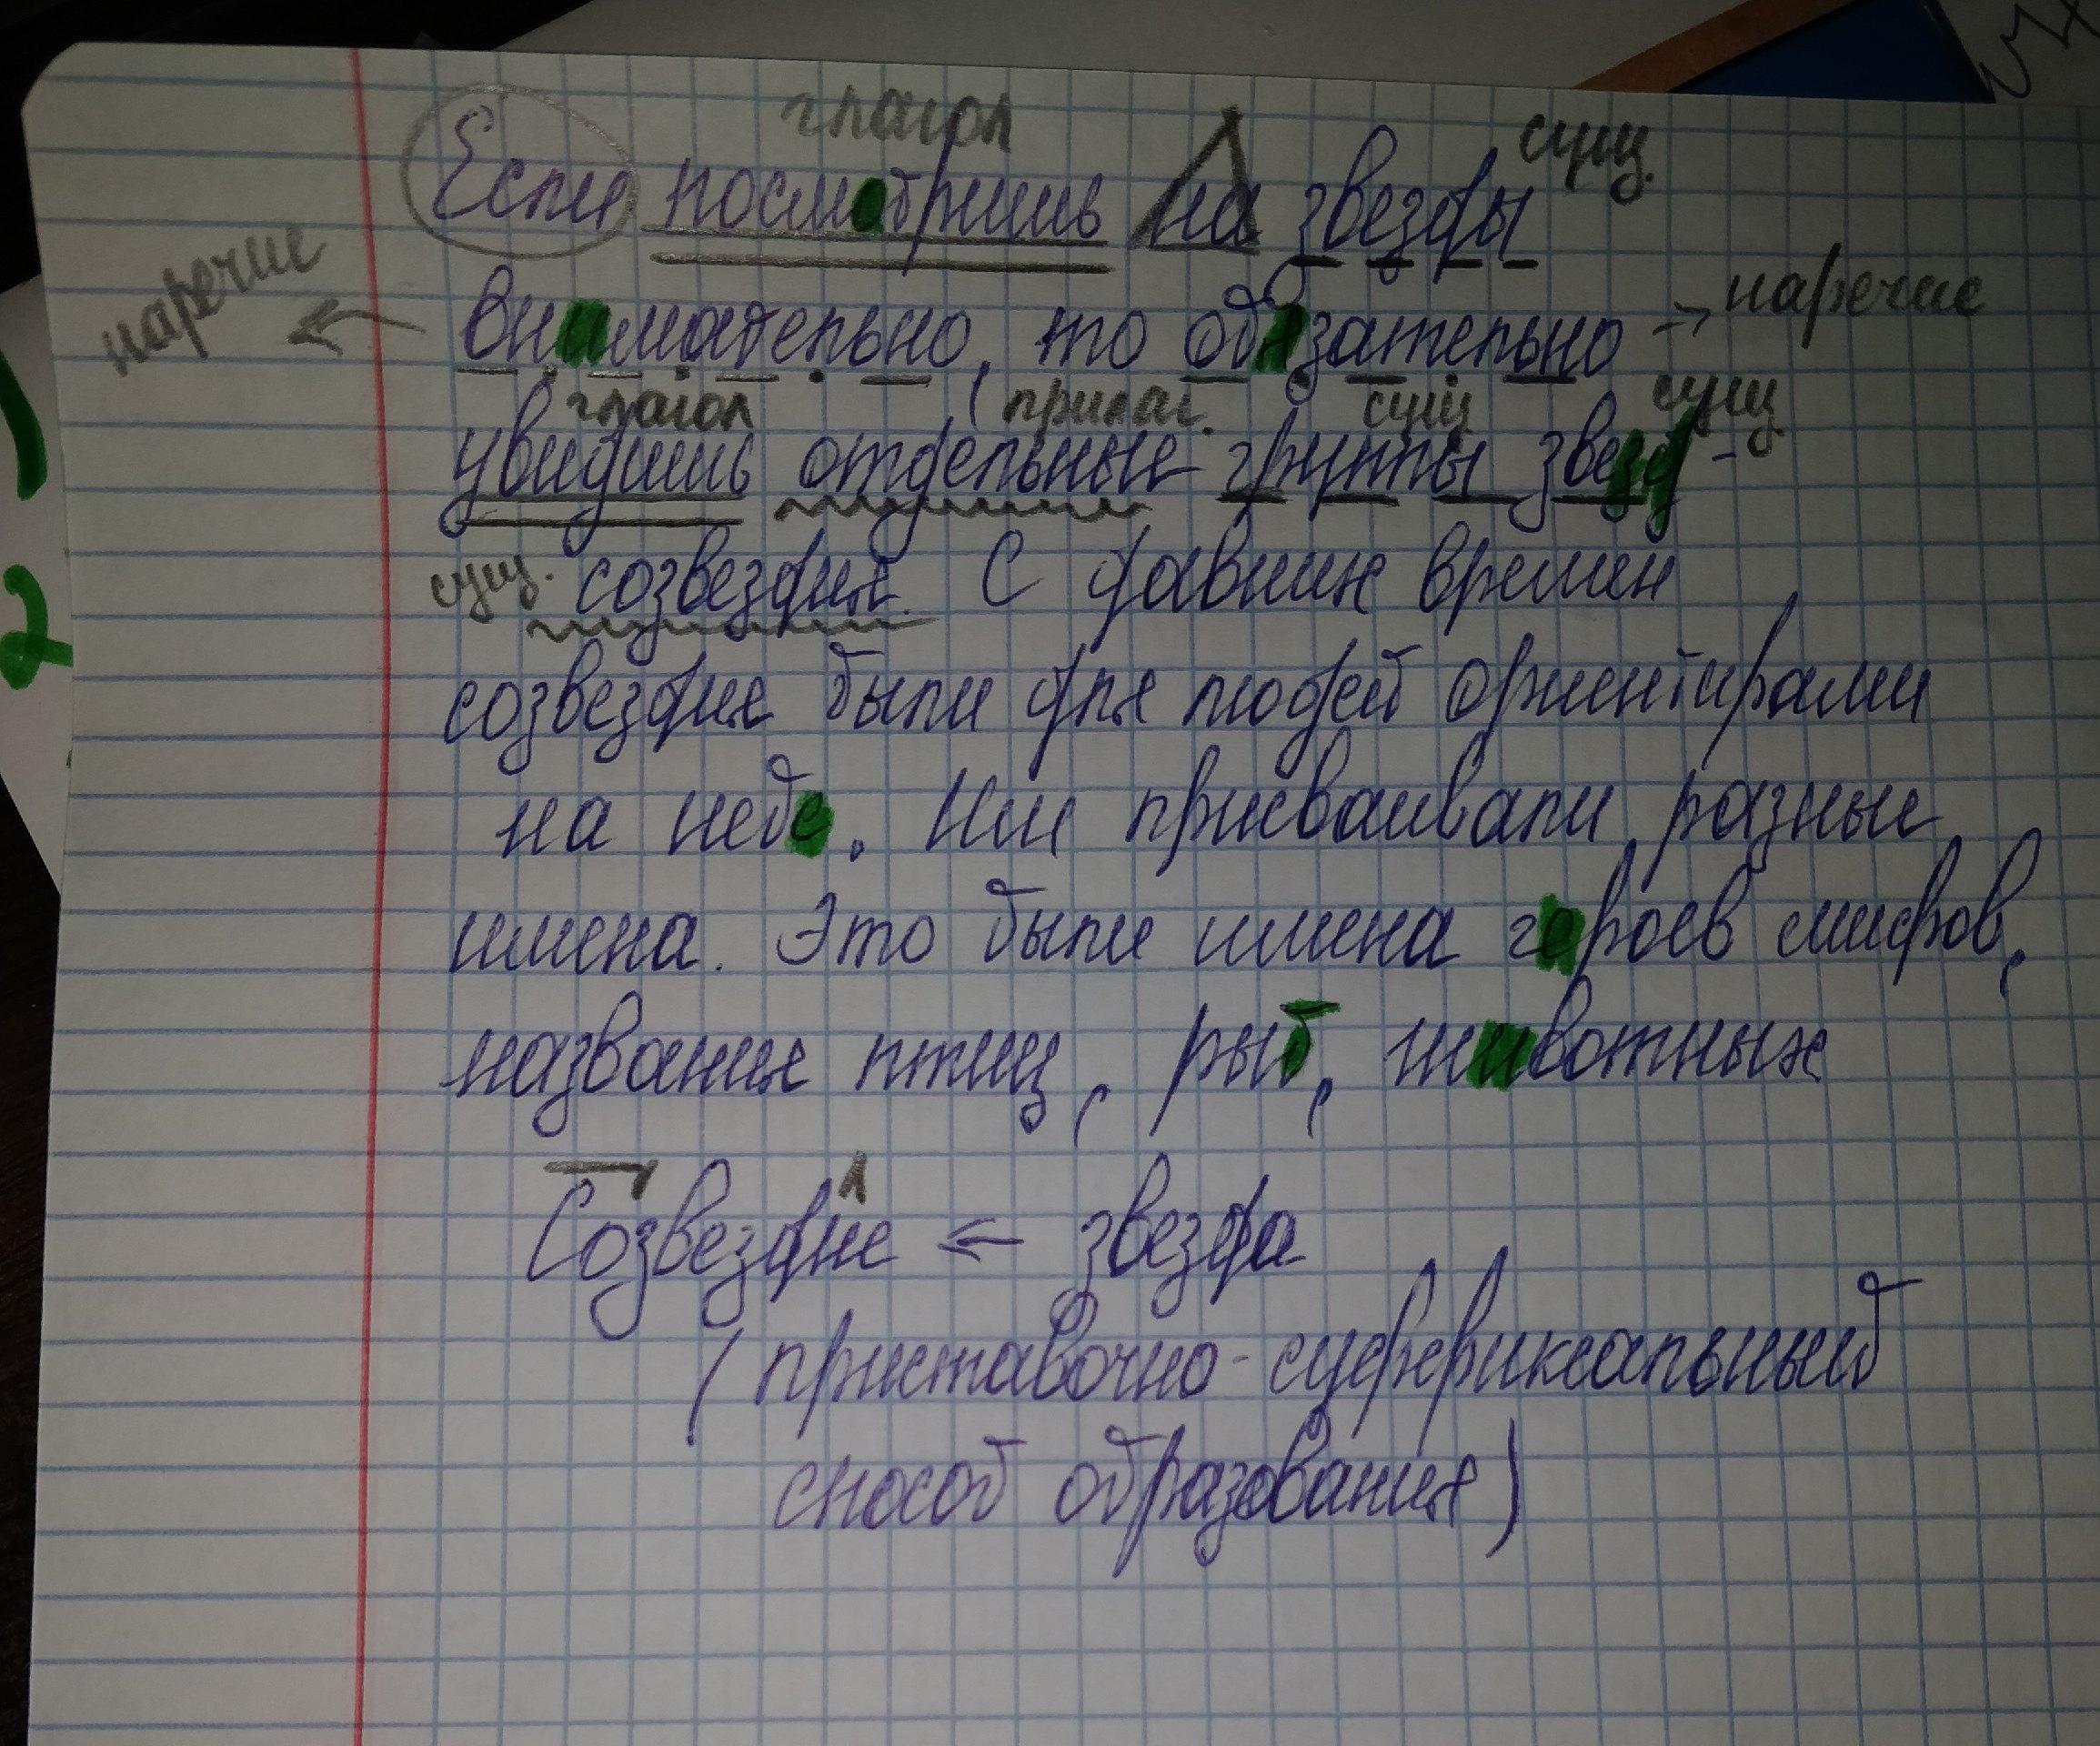 глагол сущ.
Если посмотришь на звезды
наречие ← внимательно, то обязательно → наречие
глагол прилаг. сущ сущ
увидишь отдельные группы звезд -
сущ. созвездия. С давних времен
созвездия были для людей ориентирами
на небе. Им присваивали разные
имена. Это были имена героев мифов,
названия птиц, рыб, животных
Созвездие ← звезда
(приставочно-суффиксальный
способ образования)